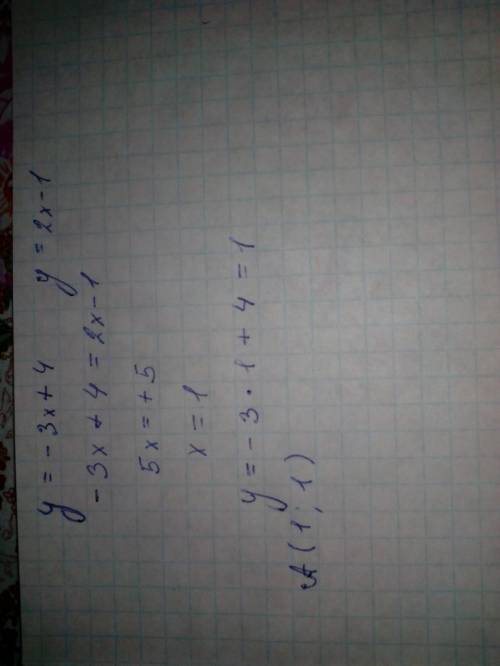 y = - 3x + 4 y = 2x - 1
- 3x + 4 = 2x - 1
5x = + 5
x = 1
y = - 3 · 1 + 4 = 1
A (1; 1)